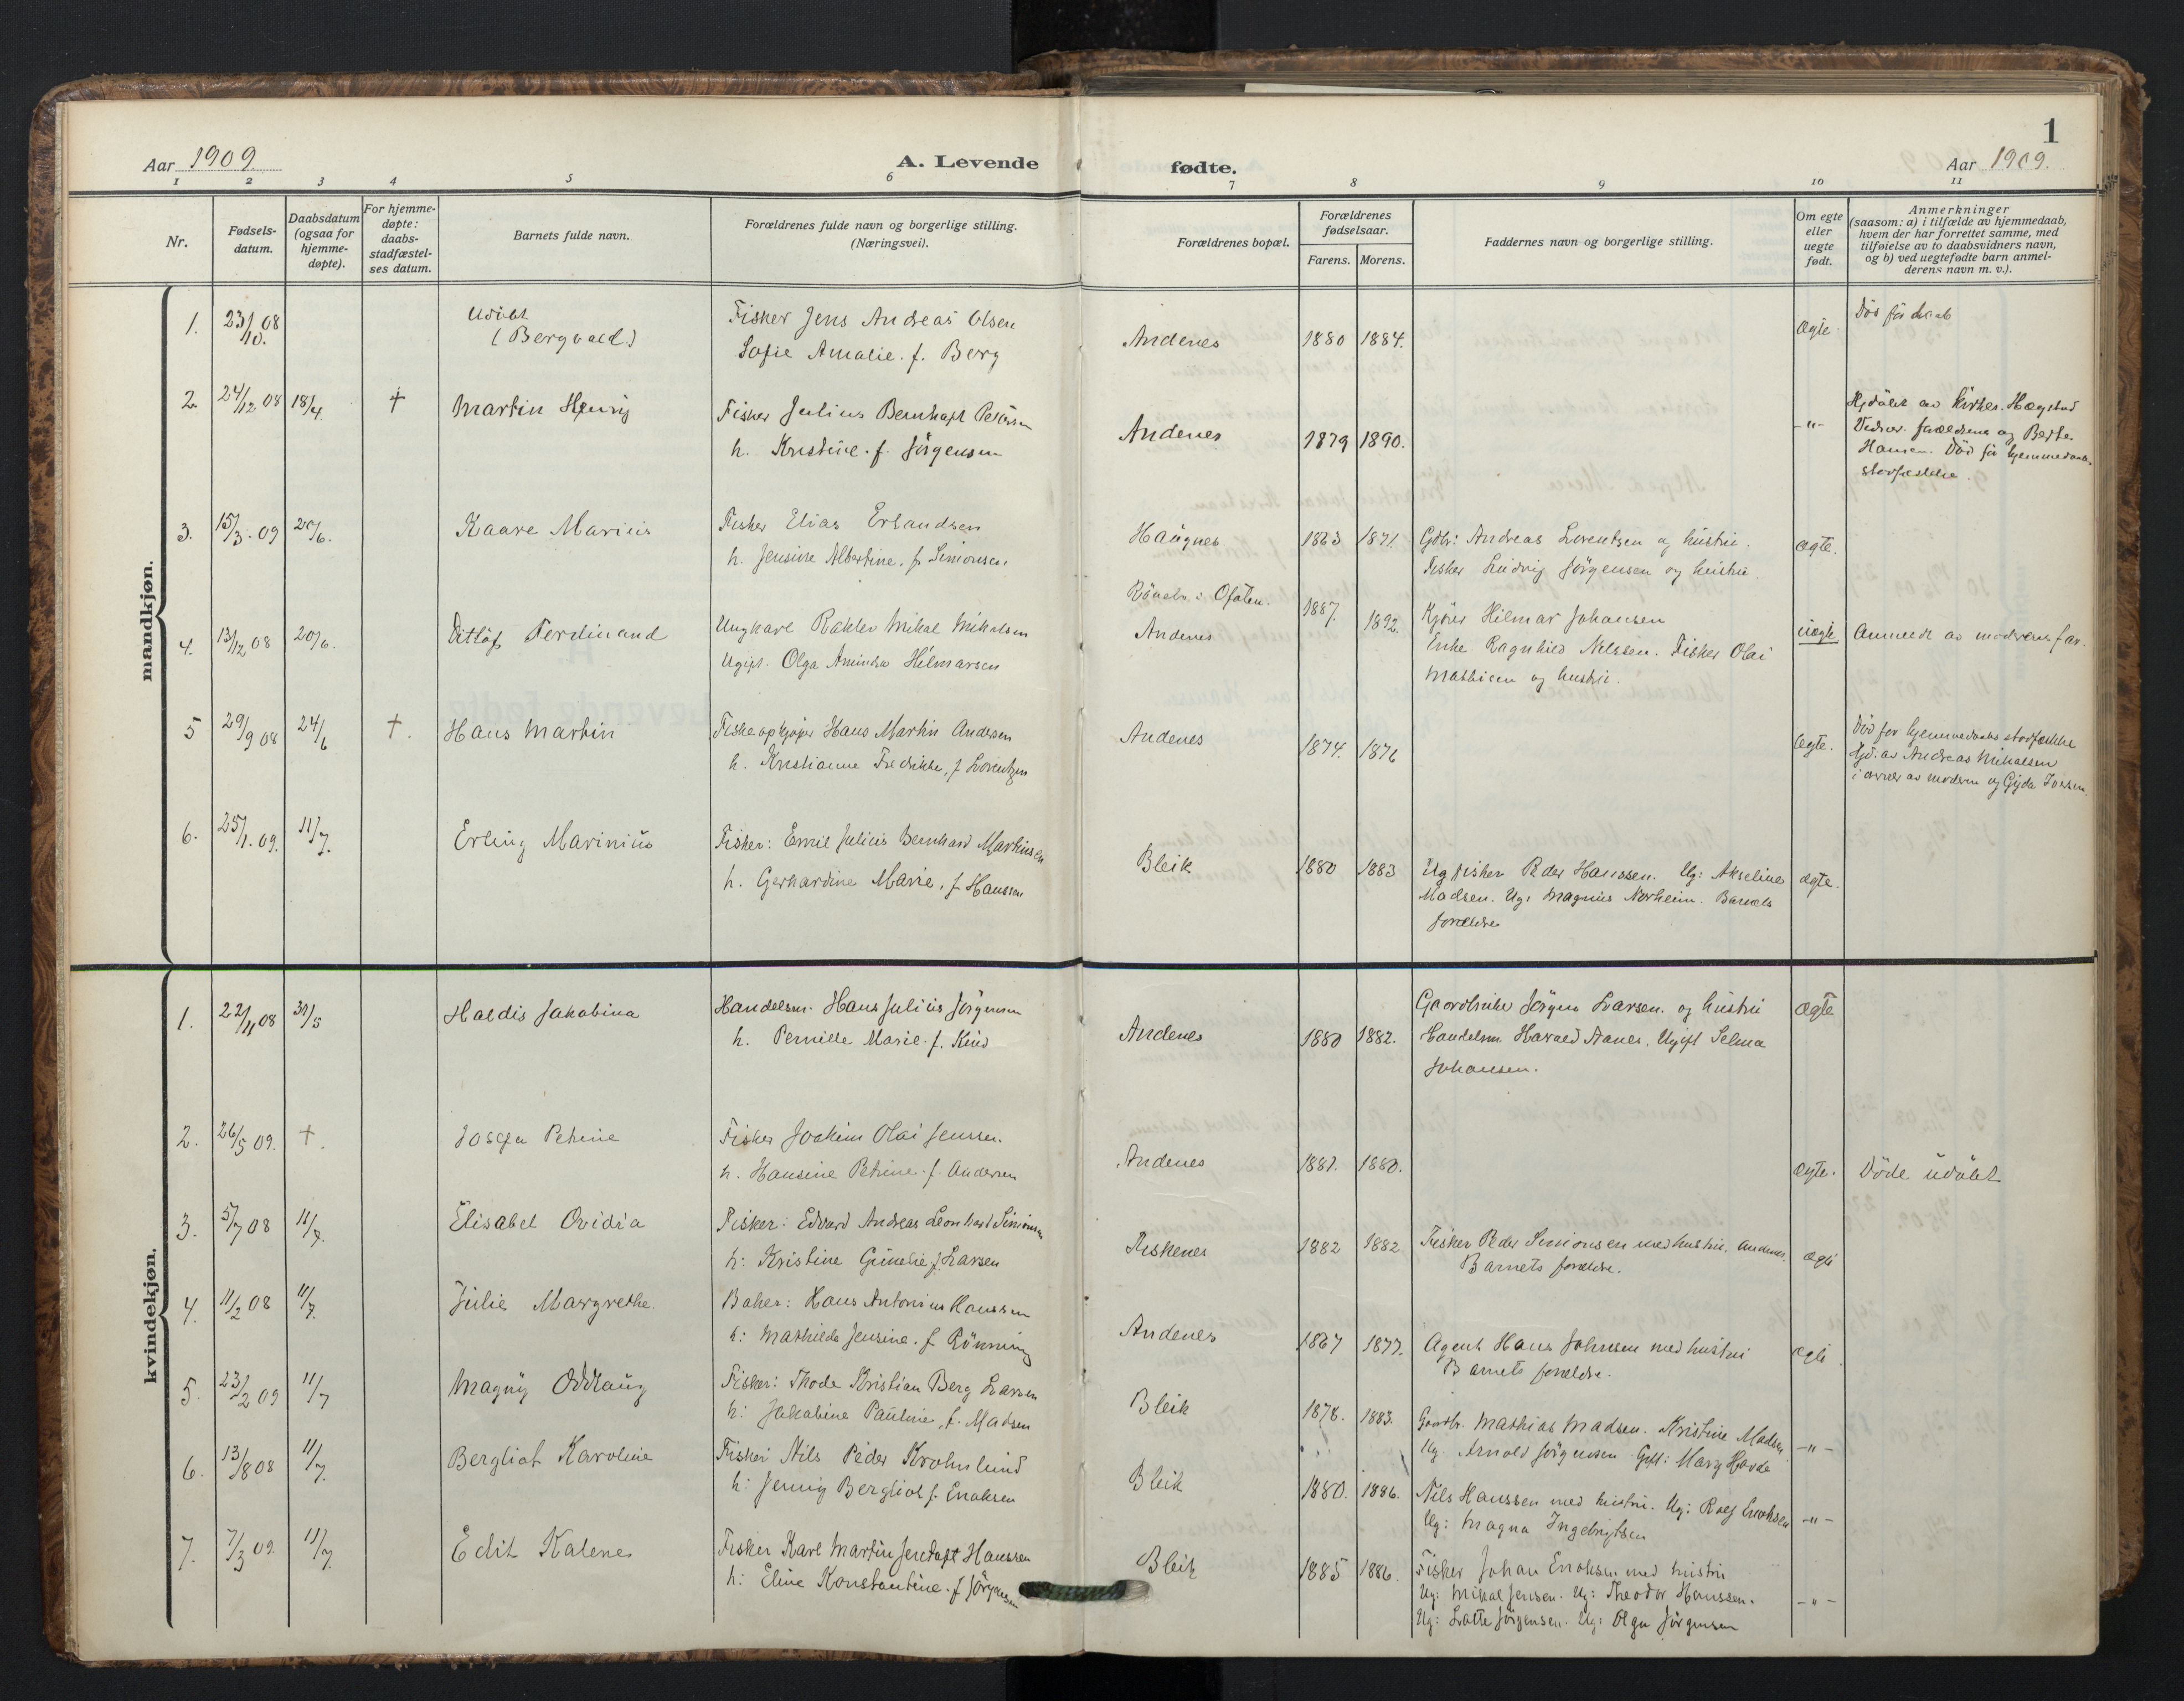 1
Aar 1909.
A. Levende
fødte.
Aar 1909.
1 2 3 4 5 6 7 8 9 10 11
Nr.
Fødsels-
datum.
Daabsdatum
(ogsaa for
hjemme-
døpte).
For hjemme-
døpte:
daabs-
stadfæstel-
ses datum.
Barnets fulde navn.
Forældrenes fulde navn og borgerlige stilling.
(Næringsvei).
Forældrenes bopæl.
Forældrenes
fødselsaar.
Farens. Morens.
Faddernes navn og borgerlige stilling.
Om egte
eller
uegte
født.
Anmerkninger
(saasom: a) i tilfælde av hjemmedaab,
hvem der har forrettet samme, med
tilføielse av to daabsvidners navn,
og b) ved uegtefødte barn anmel-
derens navn m. v.).
mandkjøn.
1. 23/10. 08
Udöbt
(Bergvald)
Fisker Jens Andreas Olsen
Sofie Amalie. f. Berg
Andenes 1880 1884.
ægte.
Död før daab
2. 24/12 08 18/4. †
Martin Henrig
Fisker Julius Bernhaft Petersen
h. Kristine. f. Jörgensen
Andenes 1879 1890.
-"-
Hjdöbt av Hægstad
forældrene og Berte
Hansen. Död før hjemmedaabs-
stadfæstelse.
3. 15/3. 09 20/6.
Kaare Marius
Fisker Elias Erlandsen
h. Jensine Albertine. f. Simonsen.
Haugnes 1863 1871.
Gdbr: Andreas Lorentsen og hustru.
Fisker Ludvig Jörgensen og hustru.
ægte.
4. 13/12 08 20/6.
Ditlöf Ferdinand
Ungkarl Mikal Mikalsen
Ugift. Olga Aminda Hilmarsen
i Ofoten.
Andenes
1887. 1892.
Hilmar Johansen
Enke Ragnhild Nilssen. Fisker Olai
Mathisen og hustru.
uægte
Anmeldt av moderens far.
5 29/9 08 24/6 †.
Hans Martin
Fiskeopkjøper Hans Martin Andersen
h. Kristianne Fredrikke, f. Lorentzen
Andenes 1874. 1876
ægte.
Död før hjemmedaabs stadfæstelse
Hjd. av Andreas Mikalsen
i nærvær av moderen og Gyda
6. 25/1. 09. 11/7.
Erling Marinius
Fisker: Emil Julius Bernhard Markussen
h. Gerhardine Marie, f. Hanssen
Bleik 1880 1883
Ug fisker Peder Hanssen. Ug: Akseline
Madsen. Ug: Magnus Norheim. Barnets
forældre
ægte.
kvindekjøn.
1. 22/11 08 31/5
Haldis Jakobina
Handelsm. Hans Julius Jörgensen
h. Pernille Marie. f. Kind
Andenes 1880 1882.
Gaardbruker Jörgen Larsen. og hustru
Handelsm. Harald Aanes, Ugift Selma
Johansen.
ægte
2. 26/5 09. †.
Josefa Petrine
Fisker Joakim Olai Jenssen.
h. Hansine Petrine. f. Andersen
Andenes 1881. 1880.
ægte.
Döde udöbt
3. 5/7 08 11/7.
Elisabet Ovidia
Fisker: Edvard Andreas Leonhard Simonsen
h: Kristine Gunelie f. Larsen
Fiskenes 1882 1882
Fisker Peder Simonsen med hustru. Andenes.
Barnets forældre.
ægte
4. 11/2 08 11/7.
Julie Margrethe.
Baker: Hans Antonius Hanssen
h: Mathilde Jensine. f. Rönning
Andenes 1867 1877.
Agent Hans Johnsen med hustru
Barnets forældre.
ægte.
5. 23/2 09 11/7
Magny Oddlaug
Fisker: Thode Kristian Berg Larsen
h: Jakobine Pauline, f. Madsen
Bleik 1878. 1883.
Gaardbr. Mathias Madsen. Kristine Madsen
Ug. Arnold Jörgensen Gift: Mary Havde
-"-
6. 13/8 08 11/7.
Bergliot Karoline
Fisker Nils Peder Krohnlund
h: Jenny Bergliot f. Enoksen
Bleik 1880. 1886.
Nils Hanssen med hustru. Ug: Rolf Enoksen
Ug: Magna Ingebrigtsen
-"-
7. 7/3 09. 11/7.
Edit Kalenes
Fisker Karl Martin Jentoft Hanssen
h: Eline Konstantine. f. Jörgensen
Bleik 1885 1886.
Fisker Johan Enoksen med hustru
Ug: Mikal Jensen. Ug: Theodor Hanssen.
Ug: Lotte Jörgensen. Ug: Olga Jörgensen
-"-